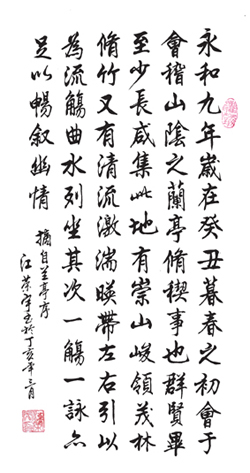 永和九年歲在癸丑暮春之初會于
會稽山陰之蘭亭脩禊事也群賢畢
至少長咸集此地有崇山峻領茂林
脩竹又有清流激湍暎帶左右引以
為流觴曲水列坐其次一觴一詠亦
足以暢叙幽情
摘自兰亭序
江 於丁亥年三月